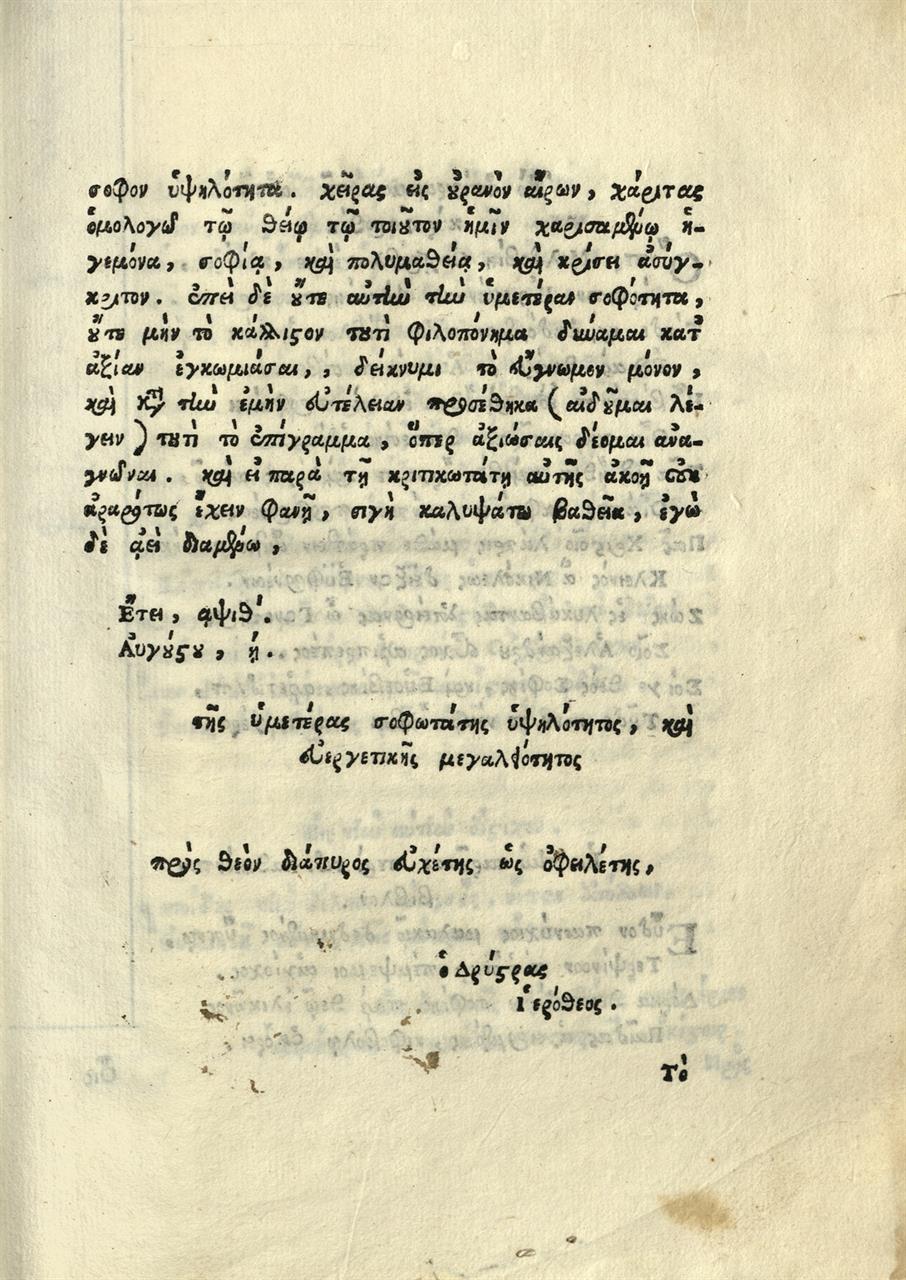 σοφον ὑψηλότητα. χεῖρας εἰς ȣ̓ρανὸν αἴρων, χάριτας
ὁμολογῶ τῷ θείῳ τῷ τοιȣ͂τον ἡμῖν χαρισαμένῳ ἡ-
γεμόνα, σοφίᾳ, καὶ πολυμαθείᾳ, καὶ κρίσει ἀσύγ-
κριτον. ἐπεὶ δὲ ȣ̓́τε αὐτὴν τὴν ὑμετέραν σοφότητα,
ȣ̓́τε μὴν τὸ κάλλιϛον τȣτὶ φιλοπόνημα δύναμαι κατ'
ἀξίαν ἐγκωμιάσαι,, δείκνυμι τὸ εὔγνωμεν μόνον,
καὶ κατὰ τὴν ἐμὴν εὐτέλειαν προσέθηκα (αἰδȣ͂μαι λέ-
γειν) τȣτὶ τὸ ἐπίγραμμα, ὅπερ ἀξιώσαις δέομαι ἀνα-
γνῶναι. καὶ εἰ παρὰ τῇ κριτικωτάτῃ αὐτῆς ἀκοῇ οὐκ
ἀραρότως ἔχειν φανῇ, σιγὴ καλυψάτω βαθεῖα, ἐγὼ
δὲ ἀεὶ διαμένω,
Ἔτει, αψιθʹ.
Αὐγȣ́ϛȣ, ή.
τῆς ὑμετέρας σοφωτάτης ὑψηλότητος, καὶ
εὐεργετικῆς μεγαλειότητος
πρὸς θεὸν διάπυρος εὐχέτης ὡς ὀφειλέτης,
ὁ Δρύϛρας
Ἱερόθεος.
Τὸ